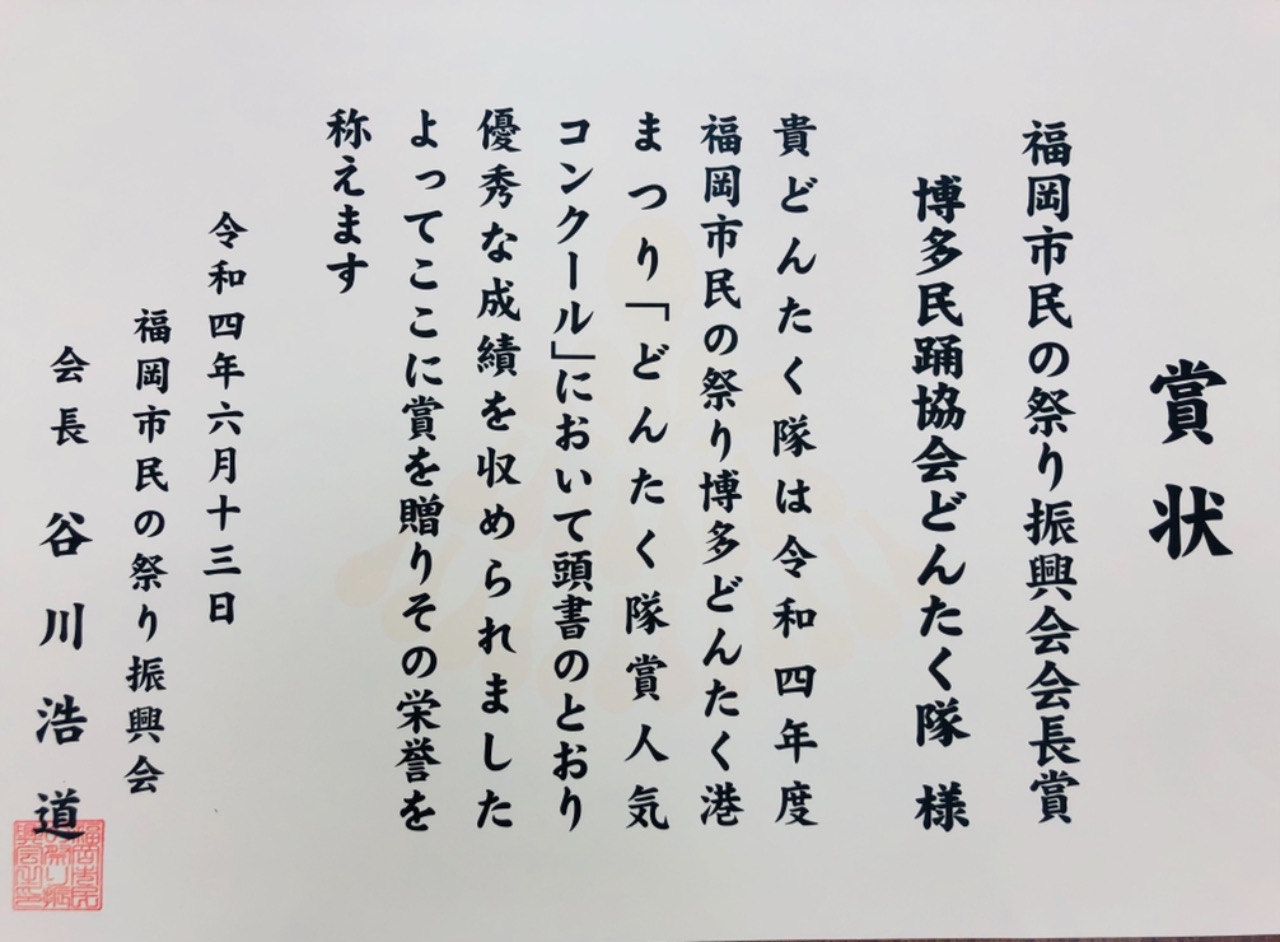 賞状
福岡市民の祭り振興会会長賞
博多民踊協会どんたく隊 様
貴どんたく隊は令和四年度
福岡市民の祭り博多どんたく港
まつり「どんたく隊賞人気
コンクール」において頭書のとおり
優秀な成績を収められました
よってここに賞を贈りその栄誉を
称えます
令和四年六月十三日
福岡市民の祭り振興会
会長 谷川浩道